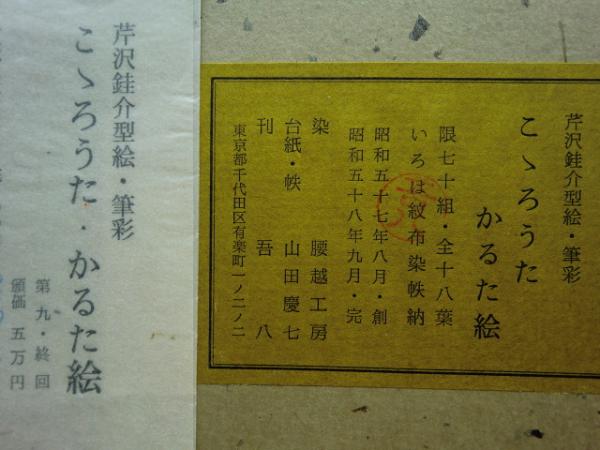 芹沢銈介型絵・筆彩
こゝろうた
かるた絵
限七十組・全十八葉
いろは紋布染帙納
昭和五十七年八月・創
昭和五十八年九月・完
染 腰越工房
台紙・帙 山田慶七
刊 吾八
東京都千代田区有楽町一ノ二ノ二
芹沢銈介型絵・筆彩
こゝろうた・かるた絵
第九・終回
頒価 五万円